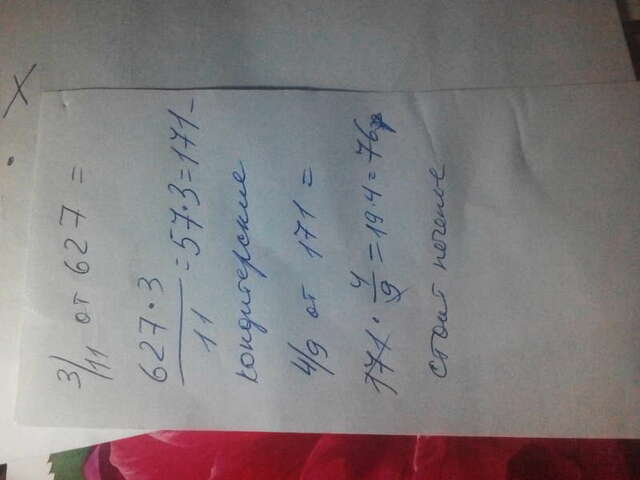 3/11 от 627 =
627·3
11
=57·3=171-
кондитерские
4/9 от 171 =
171·4/9=19·4=76р
стоит печенье